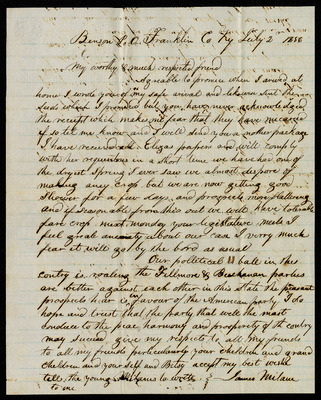 Benson P.O. Franklin Co Ky July 2 1856
My worthy & much respected friend
Agreable to promise when I arived at
home I wrote you of my safe arival and likewise sent the
seeds which I promised but you have never acknowledged
the receipt which makes me fear that they have miscaried
if so let me know and I will send you a nother package
I have received all Elizas papers and will comply
with her requisions in a short time we have had one of
the dryest Spring I ever saw we almost dispare of
making any crop but we are now getting good
Shower for a few days and prospects more flattering
and if seasonable from this out we will have tolerable
fare crop next monday your legislative meets I
feel great anxiety about our case I verry much
fear it will go by the bord as usual
Our political ball in this
contry is roaling the Fillmore & Buchanan parties
are better against each other in this State the present
prospects hear is in favour of the American party I do
hope and trust that the party that will the most
conduce to the peac harmony and prosperity of the contry
may Succeed give my respects to all my friends
to all my friends perticularly your children and grand
children and your self and Betsy accept my best wishes
tell the young to write
to me James Milam